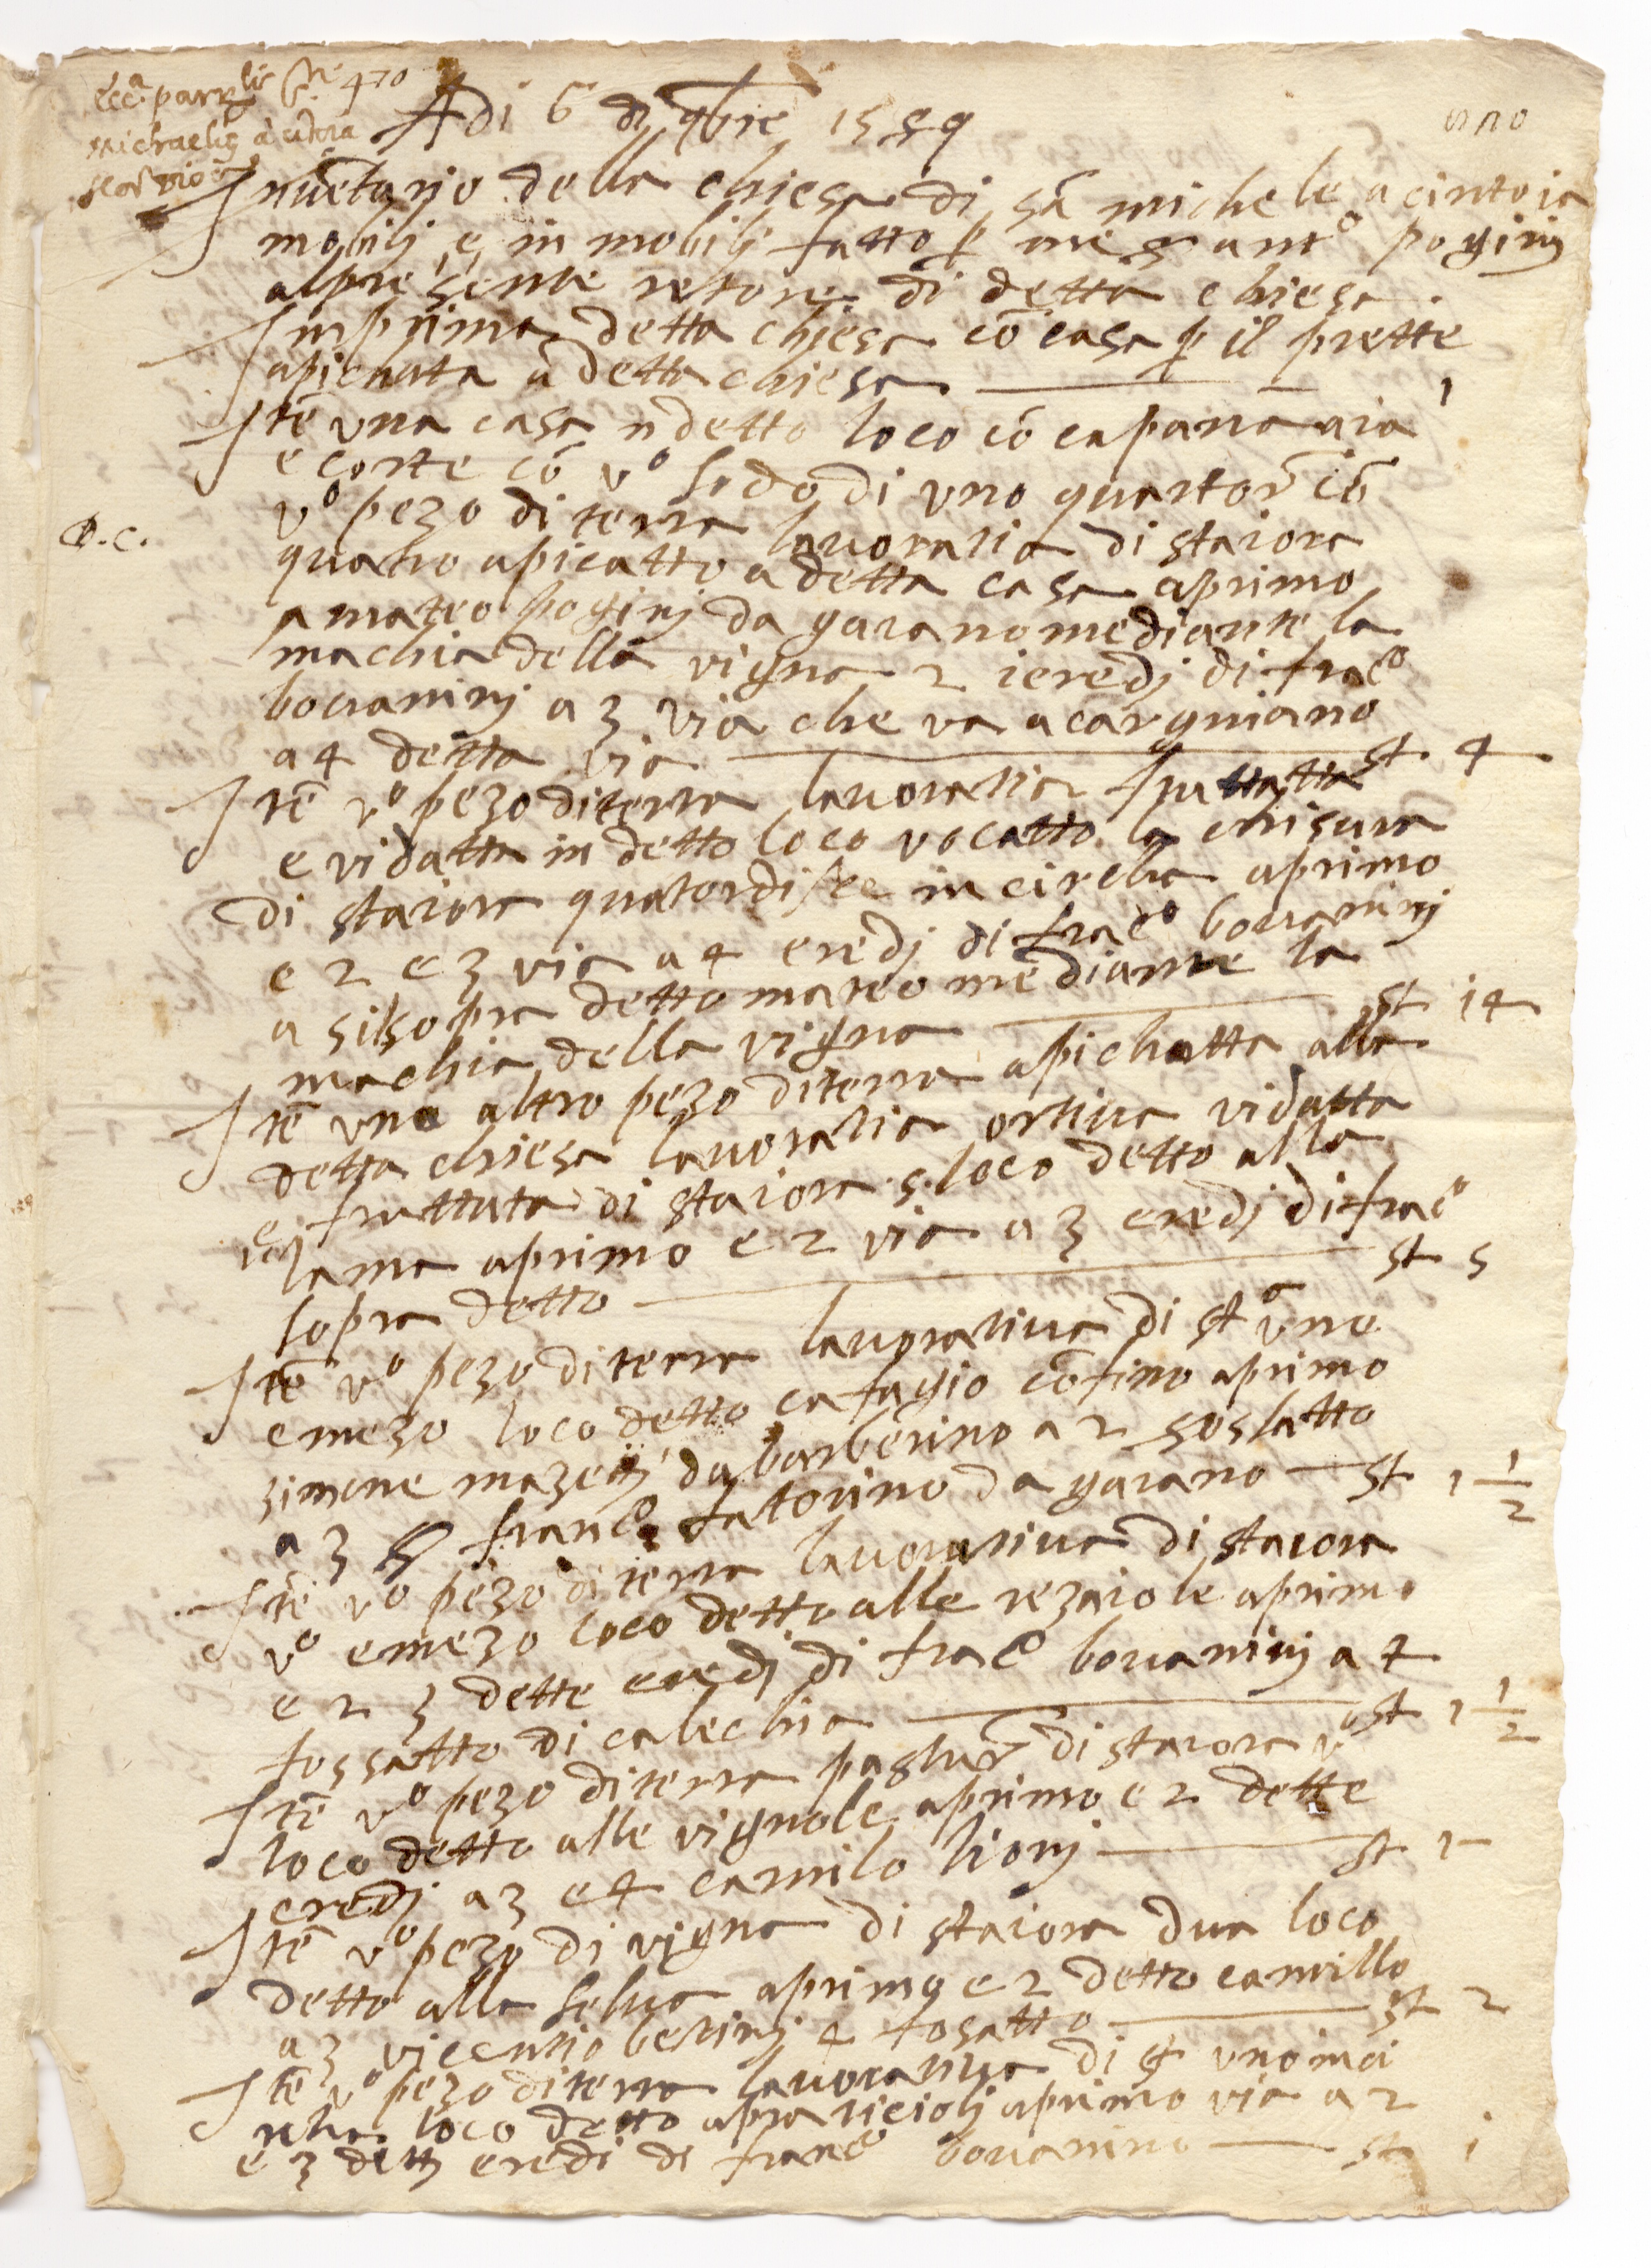 Adi 6 di 9bre 1559
Inuētario della chiesa di sā michele a cintoia
mobilj e in mobilj fatto p me s ant° poginj
alpresente retore di detta chiesa .
Inprima detta chiesa cō casa p il prette
apichata a detta chiesa 1
Itē vna casa ī detto loco cō capana aia
e corte cō v°
v° pezo di terra lauoratia di staiora
D. C.
quatro apicatto a detta casa aprimo
a mateo poginj da garano mediante la
machia della vigna 2 ieredj di frac°
bouaninj a 3 via che va a cargniano
a 4 detta via st 4
Itē v° pezo di terra lauoratia fruttatta
e vidatta in detto loco vocatto la chisura
di staiora quatordise in circha aprimo
e 2 e 3 via a 4 eredj di frac° bouaninj
a 5 ilsopra detto mateo mediante la
machia della vigna st 14
Itē vno altro pezo di terra apichatta alla
detta chiesa lauoratia ortiua vidatta
e fruttata di staiora 5 loco detto alla
lama aprimo e 2 via a 3 eredj di frac°
sopra detto st 5
Itē v° pezo di terra lauoratiua di st vno
e mezo loco detto cafagio cōfino aprimo
simone mazetti da barberino a 2 foslatto
a 3 franc° fatorino da garano st 1 1/2
Itē v° pezo di terra lauoratiua di staiora
v° e mezo loco detto alle rezaiole aprimo
e 2 3 dette eredj di frac° bouaninj a 4
fossatto di calechia st 1 1/2
Itē v° pezo di terra di staiora v°
loco detto alle vignole aprimo e 2 dette
eredj a 3 e 4 camilo lionj st 1
Itē v° pezo di vigna di staiora dua loco
detto alla selua aprimo e 2 detto camillo
a 3 vicentio 4 fosatto st 2
Itē v° pezo di terra lauoratiua di st vno
loco detto aprimo via a 2
e 3 dettj eredi di franc° bouanino st 1